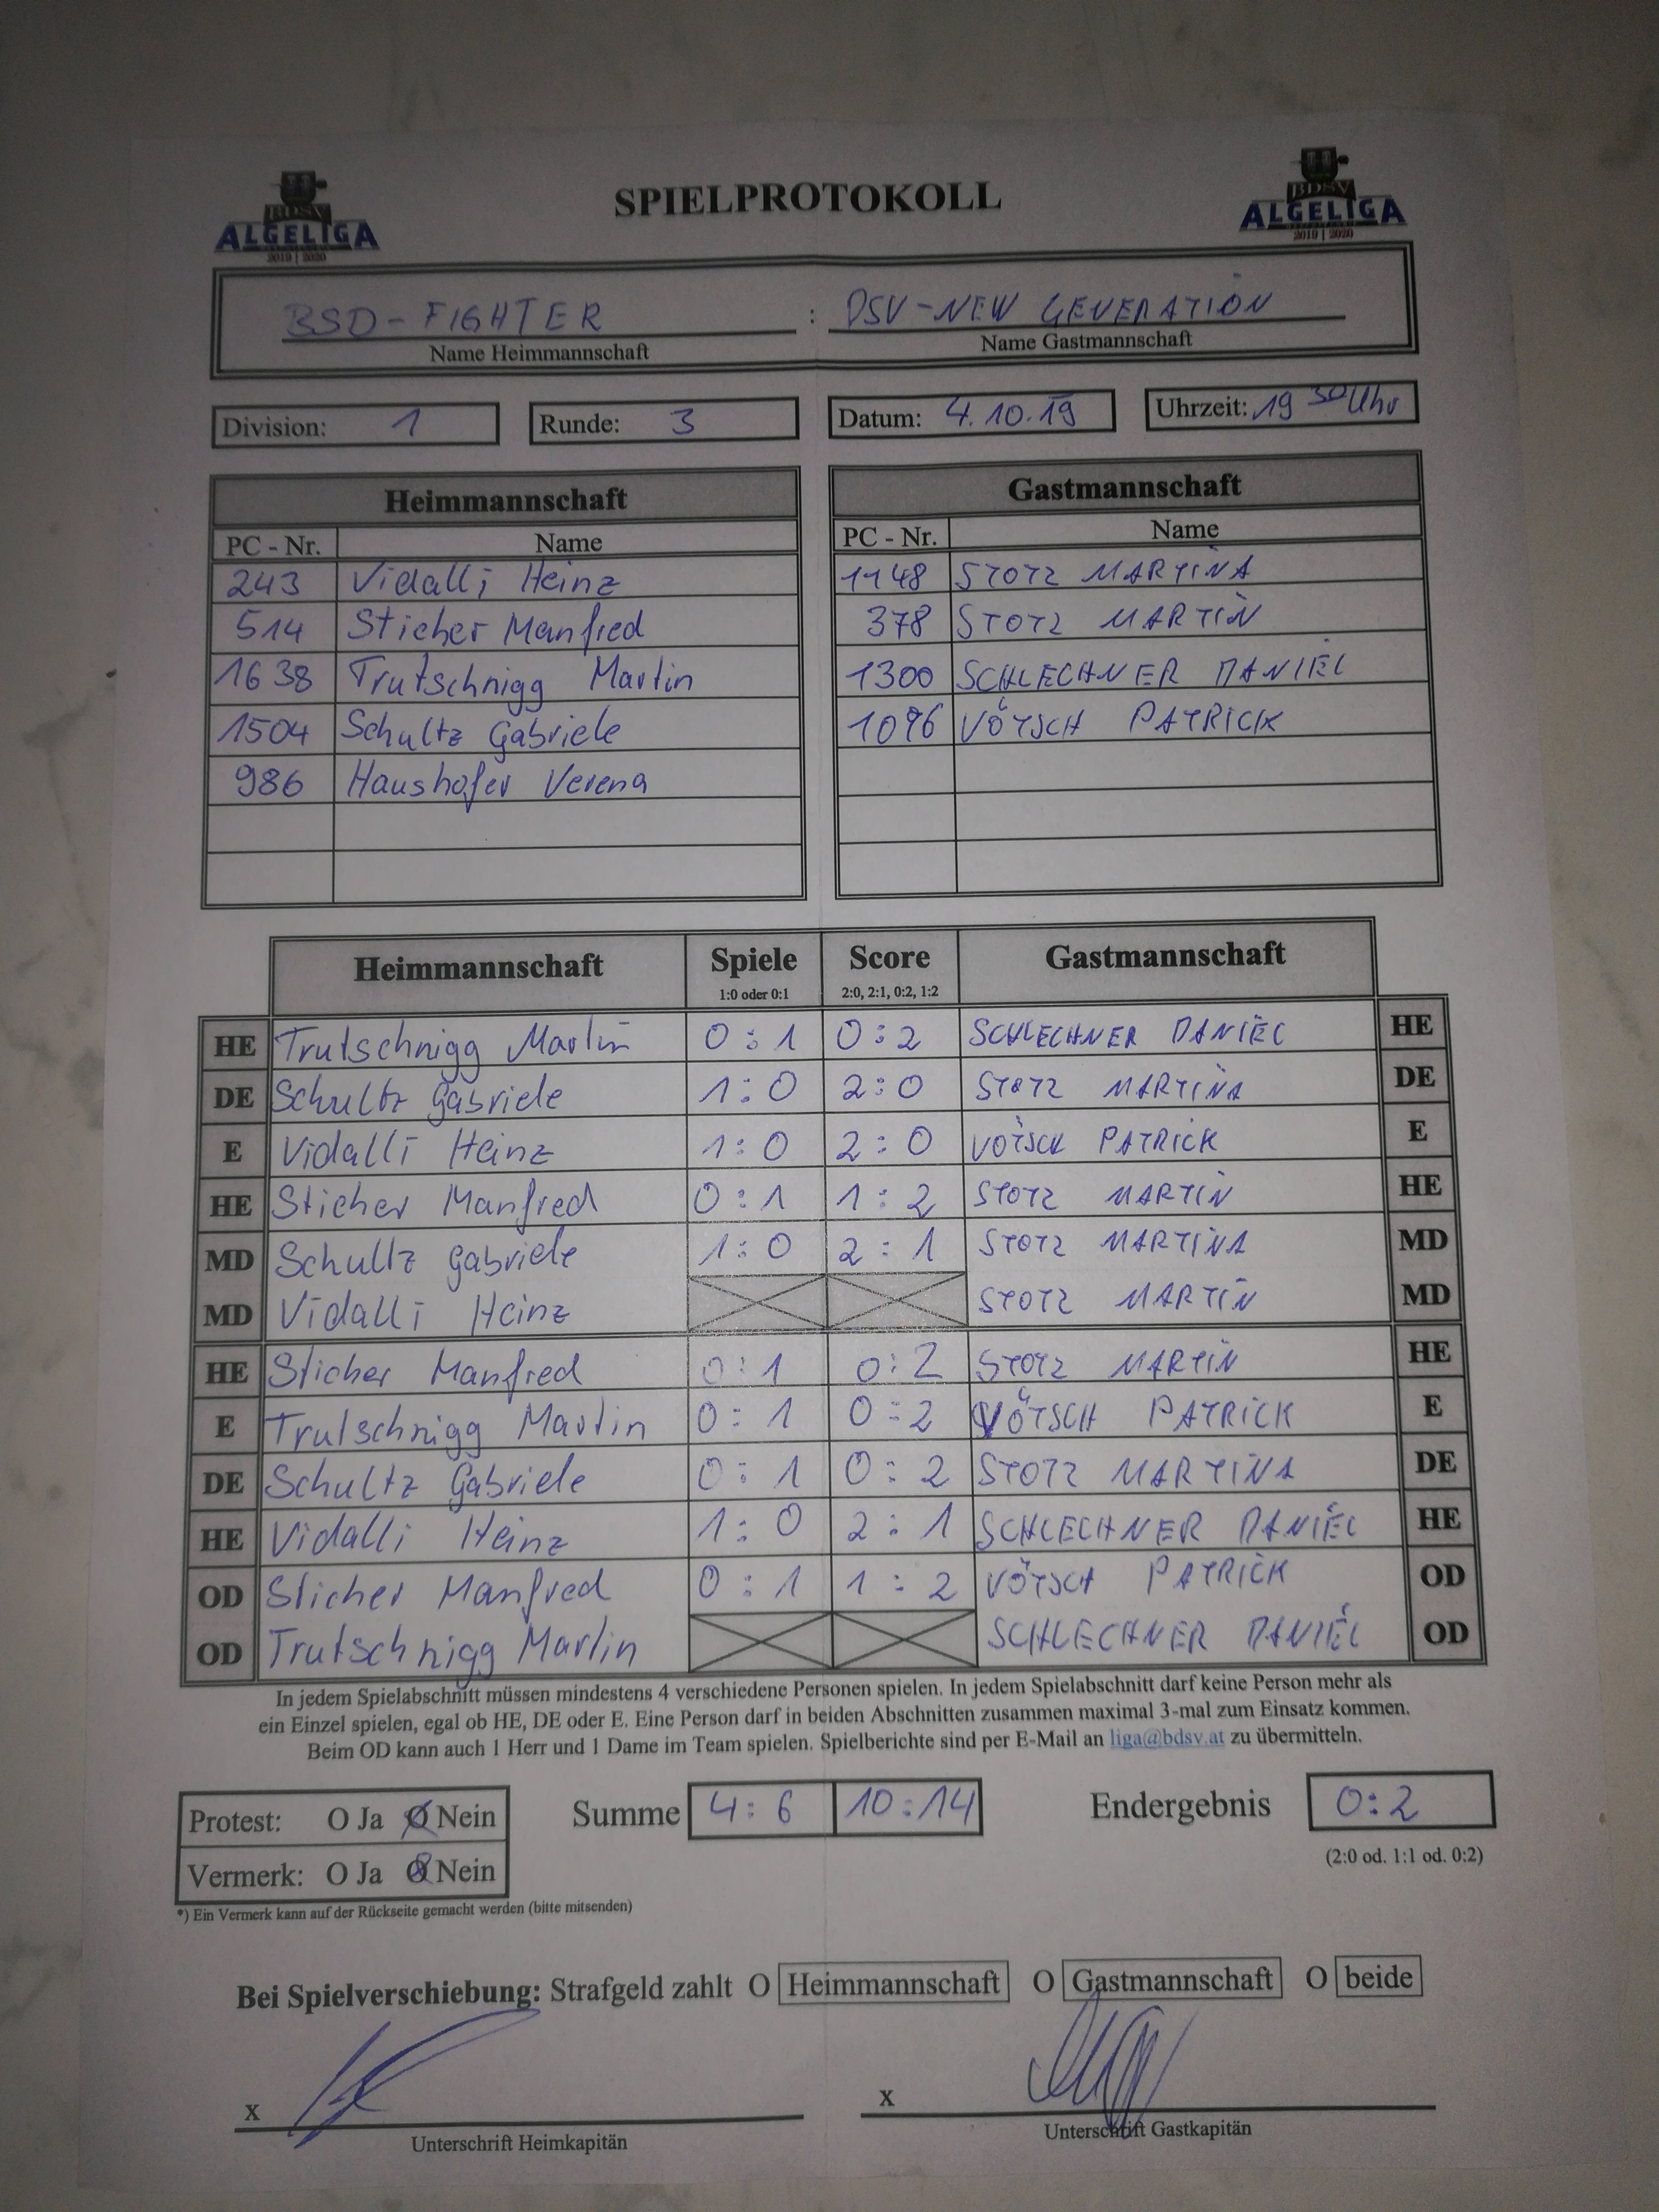 BDSV
ALGELIGA
2019 | 2020
SPIELPROTOKOLL
BDSV
ALGELIGA
2019 | 2020
BSD-FIGHTER : DSV-NEW GENERATION
Name Heimmannschaft Name Gastmannschaft
Division: 1 Runde: 3 Datum: 4.10.19 Uhrzeit: 19 30 Uhr
Heimmannschaft Gastmannschaft
PC - Nr. Name PC - Nr. Name
243 Vidalli Heinz 1148 STOTZ MARTINA
514 Sticher Manfred 378 STOTZ MARTIN
1638 Trutschnigg Martin 1300 SCHLECHNER DANIEL
1504 Schultz Gabriele 1096 VÖTSCH PATRICK
986 Haushofer Verena
Heimmannschaft Spiele Score Gastmannschaft
1:0 oder 0:1 2:0, 2:1, 0:2, 1:2
HE Trutschnigg Martin 0:1 0:2 SCHLECHNER DANIEL HE
DE Schultz Gabriele 1:0 2:0 STOTZ MARTINA DE
E Vidalli Heinz 1:0 2:0 VÖTSCH PATRICK E
HE Sticher Manfred 0:1 1:2 STOTZ MARTIN HE
MD Schultz Gabriele 1:0 2:1 STOTZ MARTINA MD
MD Vidalli Heinz STOTZ MARTIN MD
HE Sticher Manfred 0:1 0:2 STOTZ MARTIN HE
E Trutschnigg Martin 0:1 0:2 VÖTSCH PATRICK E
DE Schultz Gabriele 0:1 0:2 STOTZ MARTINA DE
HE Vidalli Heinz 1:0 2:1 SCHLECHNER DANIEL HE
OD Sticher Manfred 0:1 1:2 VÖTSCH PATRICK OD
OD Trutschnigg Martin SCHLECHNER DANIEL OD
In jedem Spielabschnitt müssen mindestens 4 verschiedene Personen spielen. In jedem Spielabschnitt darf keine Person mehr als
ein Einzel spielen, egal ob HE, DE oder E. Eine Person darf in beiden Abschnitten zusammen maximal 3-mal zum Einsatz kommen.
Beim OD kann auch 1 Herr und 1 Dame im Team spielen. Spielberichte sind per E-Mail an liga@bdsv.at zu übermitteln.
Protest: O Ja O Nein Summe 4:6 10:14 Endergebnis 0:2
Vermerk: O Ja O Nein (2:0 od. 1:1 od. 0:2)
*) Ein Vermerk kann auf der Rückseite gemacht werden (bitte mitsenden)
Bei Spielverschiebung: Strafgeld zahlt O Heimmannschaft O Gastmannschaft O beide
x x
Unterschrift Heimkapitän Unterschrift Gastkapitän